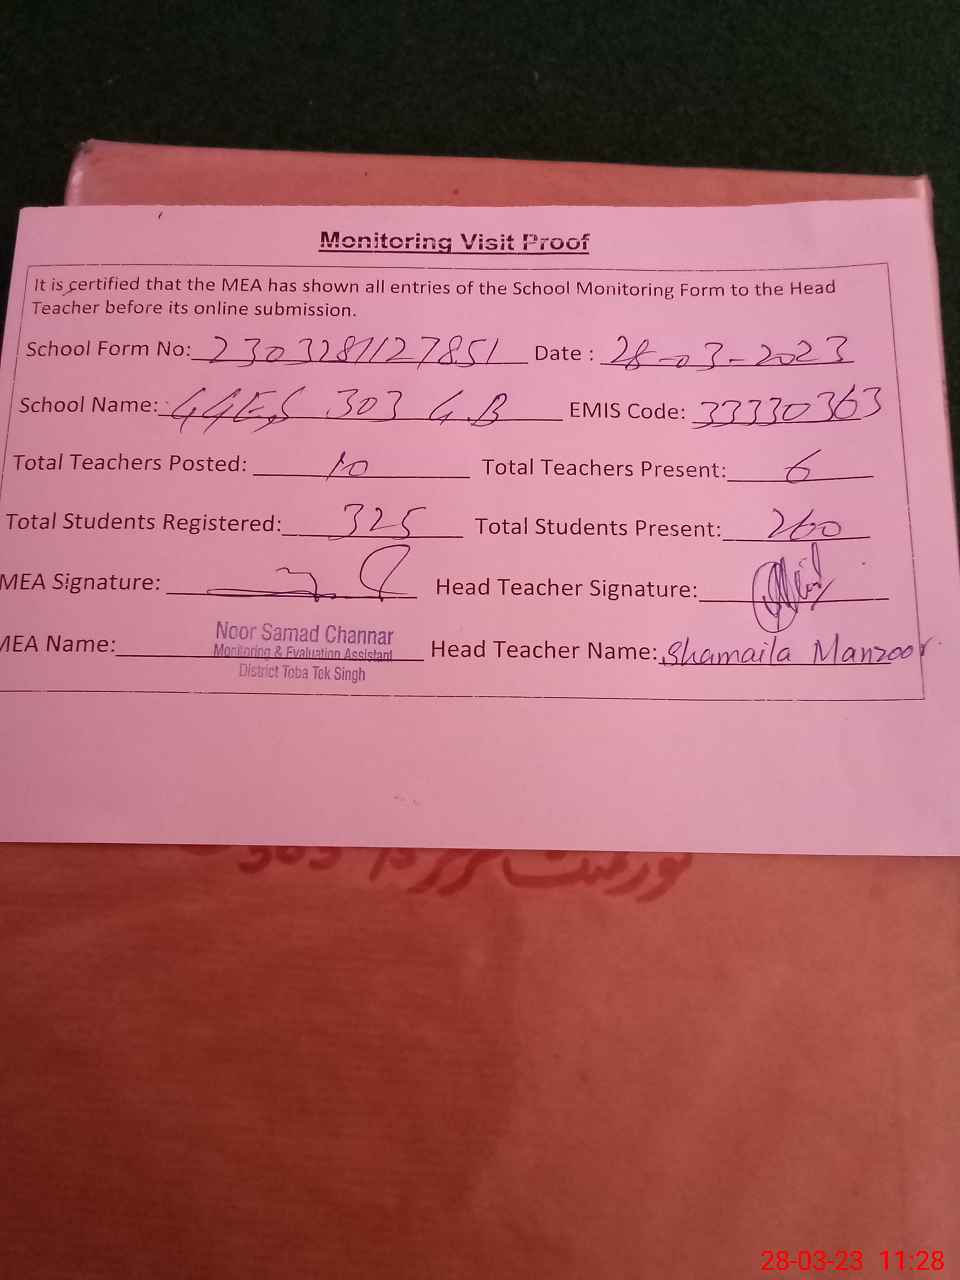 Monitoring Visit Proof
It is certified that the MEA has shown all entries of the School Monitoring Form to the Head
Teacher before its online submission.
School Form No: 2303281127851 Date : 28-03-2023
School Name: GGES 303 GB EMIS Code: 33330363
Total Teachers Posted: 10 Total Teachers Present: 6
Total Students Registered: 325 Total Students Present: 260
MEA Signature: Head Teacher Signature:
MEA Name: Noor Samad Channar Head Teacher Name: Shamaila Manzoor
Monitoring & Evaluation Assistant
District Toba Tek Singh
28-03-23 11:28